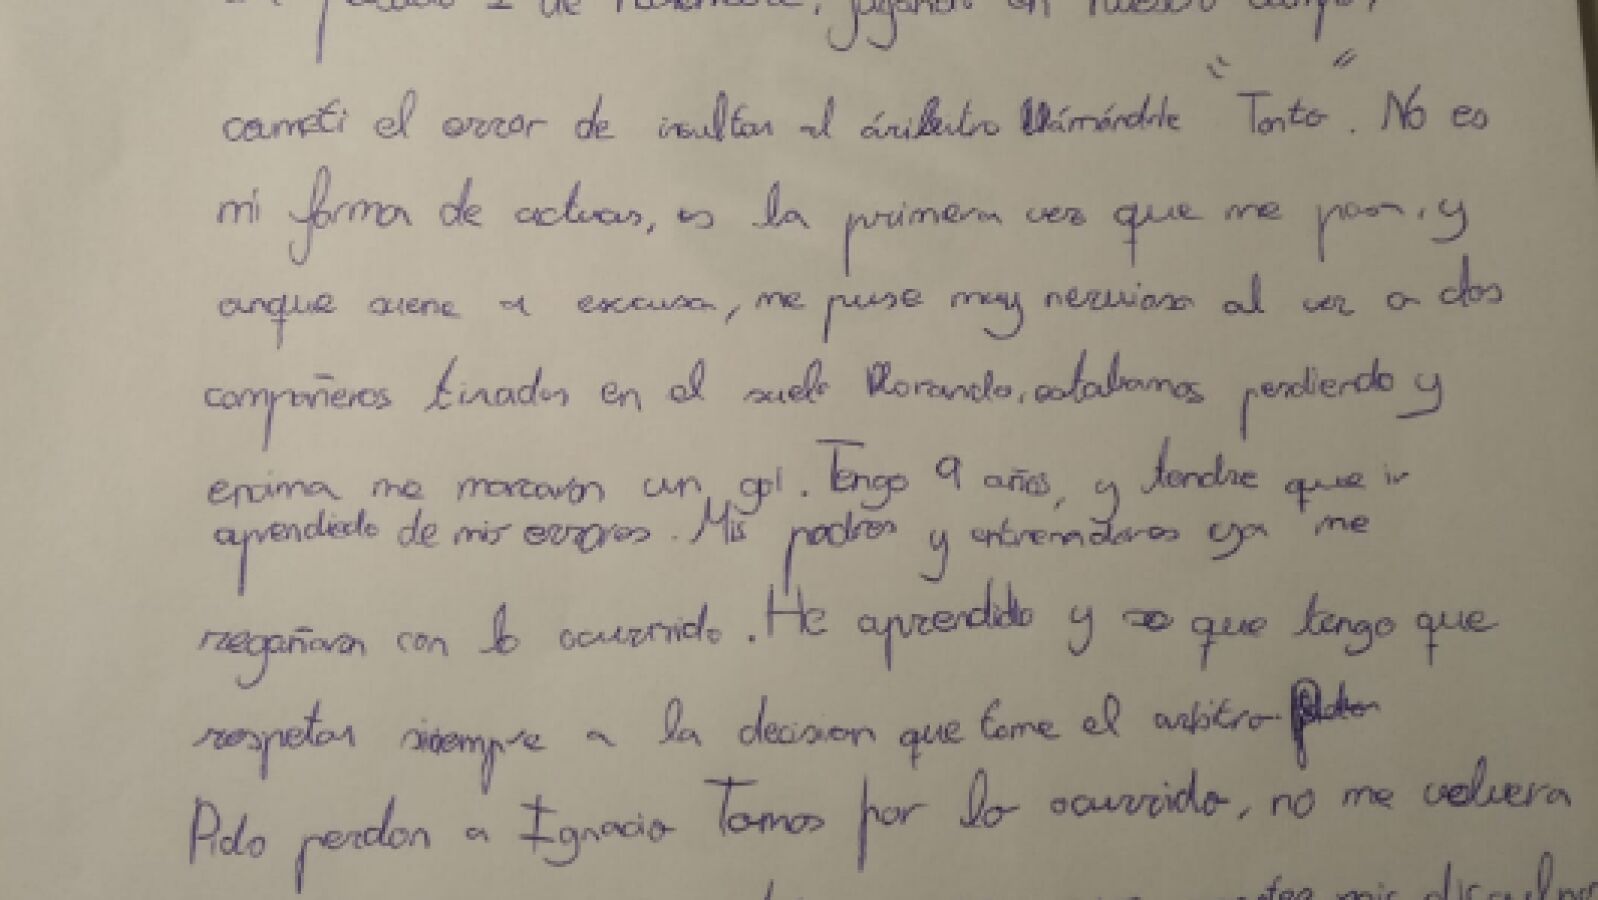 pasado 1 de Noviembre, jugando en nuestro campo,
cometi el error de insultar al áribitro llámándole "Tonto". No es
mi forma de actuar, es la primera vez que me pasa, y
aunque suene a escusa, me puse muy nervioso al ver a dos
compañeros tirados en el suelo llorando, estabamos perdiendo y
encima me marcaron un gol. Tengo 9 años, y tendre que ir
aprendiedo de mis errores. Mis padres y entrenadores ya me
regañaron con lo ocurrido. He aprendido y se que tengo que
respetar siempre a la decision que tome el arbitro.
Pido perdon a Ignacio Tomas por lo ocurrido, no me volvera
mis disculpas